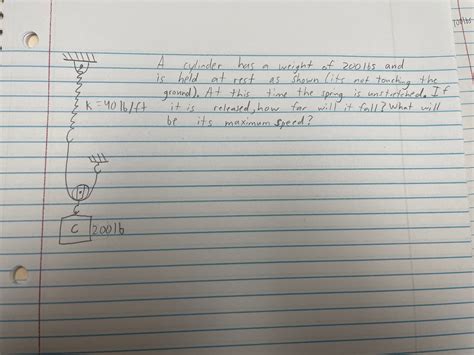 A cylinder has a weight of 200lbs and
is held at rest as shown (its not touching the
ground). At this time the spring is unstretched. If
K=40lb/ft it is released, how far will it fall? What will
be its maximum speed?
C 200lb